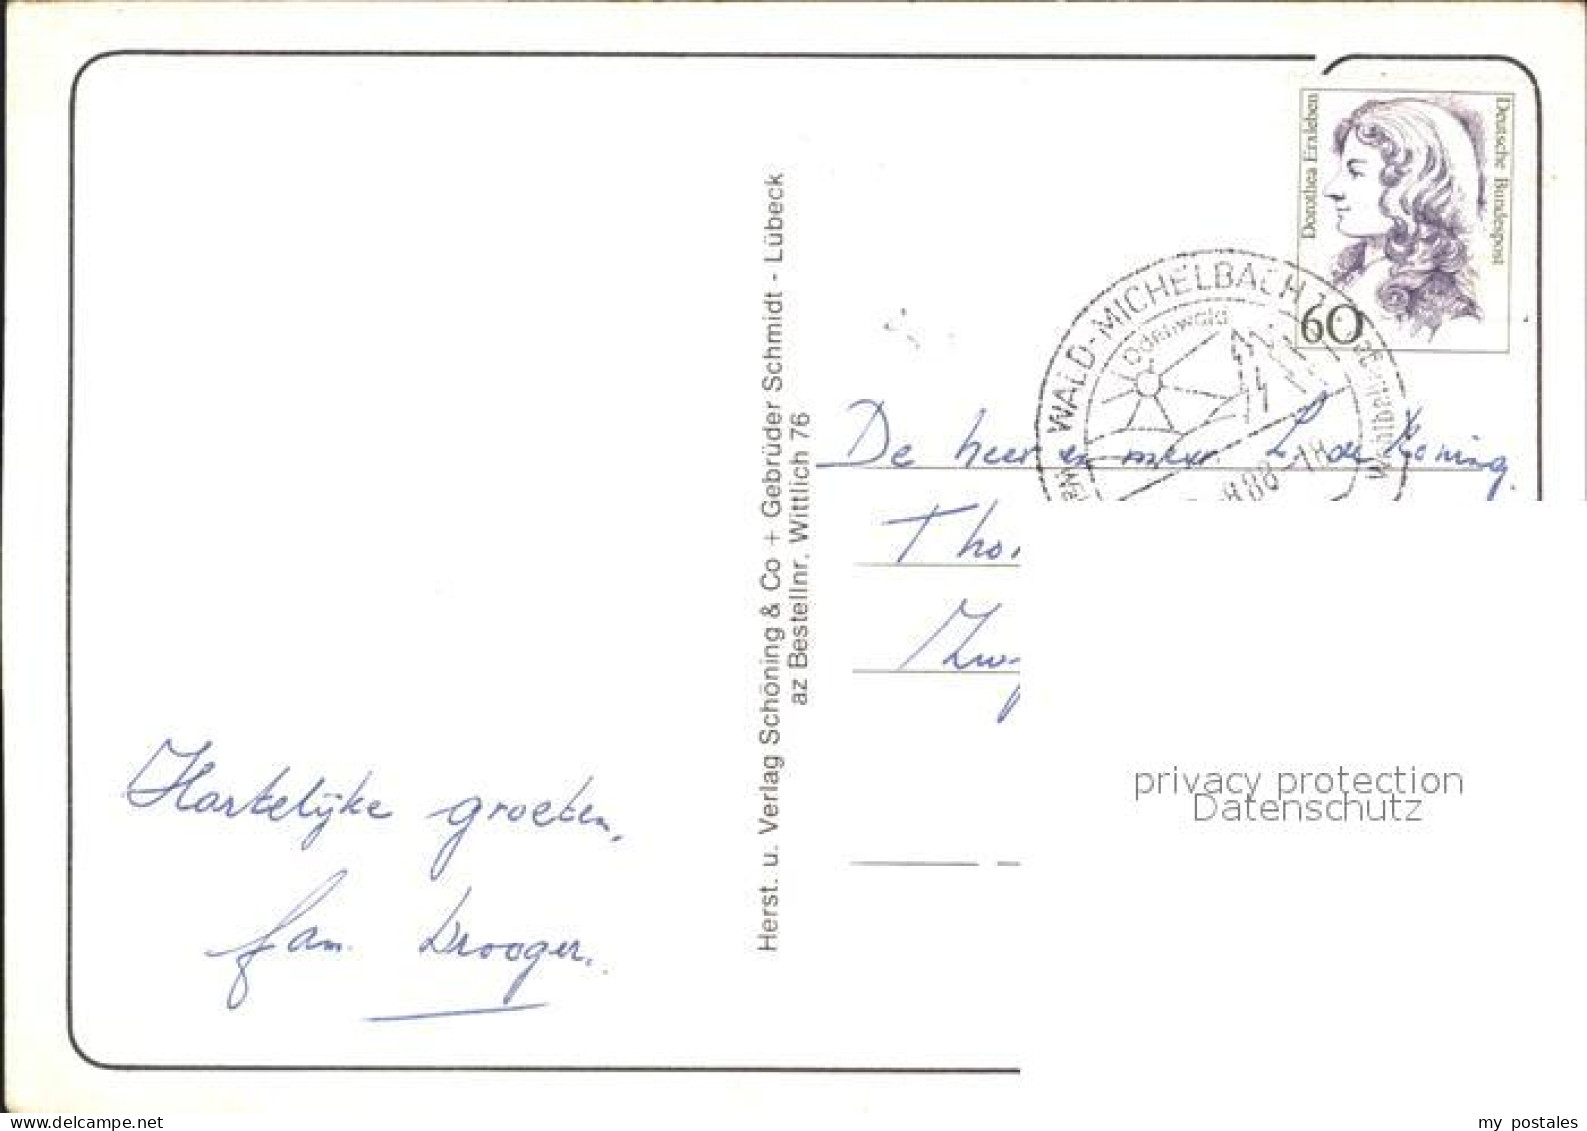 Dorothea Erxleben
Deutsche Bundespost
60
WALD-MICHELBACH 1
Odenwald
88-18
Herst. u. Verlag Schöning & Co + Gebrüder Schmidt - Lübeck
az Bestellnr. Wittlich 76
De heer en mevr. L de Koning.
Hartelijke groeten,
fam. Drooger.
privacy protection
Datenschutz
www.delcampe.net
my_postales